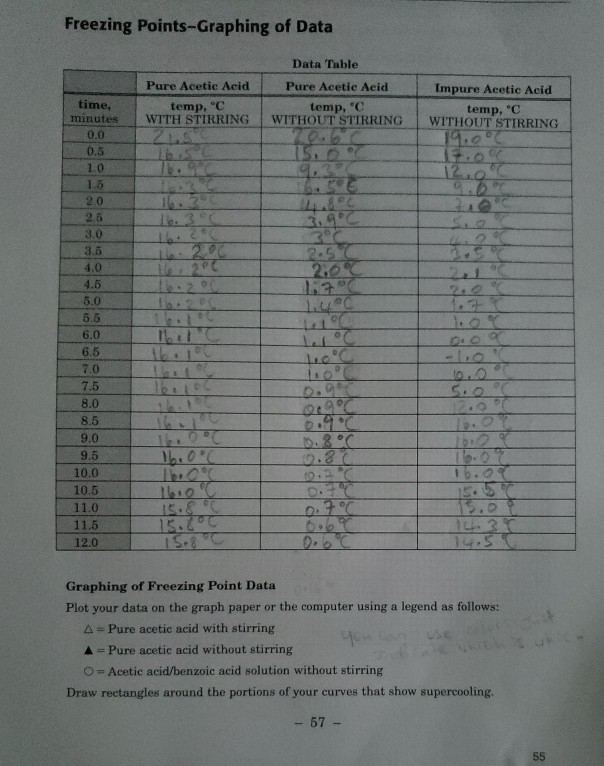 Freezing Points–Graphing of Data
Data Table
Pure Acetic Acid Pure Acetic Acid Impure Acetic Acid
time, minutes temp, °C WITH STIRRING temp, °C WITHOUT STIRRING temp, °C WITHOUT STIRRING
0.0 21.5 20.6°C 19.0°C
0.5 16.5°C 15.0°C 17.0°C
1.0 16.9°C 9.3°C 12.0°C
1.5 16.3°C 6.5°C 9.0°C
2.0 16.3°C 4.8°C 7.0°C
2.5 16.3°C 3.9°C 5.0°C
3.0 16.2°C 3°C 4.2°C
3.5 16.2°C 2.5°C 3.5°C
4.0 16.2°C 2.0°C 2.1°C
4.5 16.2°C 1.7°C 2.0°C
5.0 16.2°C 1.4°C 1.7°C
5.5 16.1°C 1.1°C 1.0°C
6.0 16.1°C 1.1°C 0.0°C
6.5 16.1°C 1.0°C -1.0°C
7.0 16.1°C 1.0°C 0.0°C
7.5 16.1°C 0.9°C 5.0°C
8.0 16.1°C 0.9°C 12.0°C
8.5 16.1°C 0.9°C 16.0°C
9.0 16.0°C 0.8°C 16.0°C
9.5 16.0°C 0.8°C 16.0°C
10.0 16.0°C 0.7°C 16.0°C
10.5 16.0°C 0.7°C 15.5°C
11.0 15.8°C 0.7°C 15.0°C
11.5 15.8°C 0.6°C 14.3°C
12.0 15.8°C 0.6°C 14.5°C
Graphing of Freezing Point Data
Plot your data on the graph paper or the computer using a legend as follows:
△ = Pure acetic acid with stirring
▲ = Pure acetic acid without stirring
○ = Acetic acid/benzoic acid solution without stirring
you can use color just
indicate which is which
Draw rectangles around the portions of your curves that show supercooling.
– 57 –
55